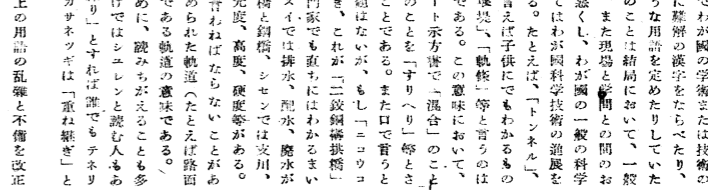 でわが國の学術または技術の
に難解の漢字をならべたり、
うな用語を定めたりしていた
のことは結局において、一般
また現場と学問との間のお
悪くし、わが國の一般の科学
てはわが國科学技術の進展を
る。たとえば、「トンネル」、
言えば子供にでもわかるもの
堤」、「軌條」等と言うのは
である。この意味において、
ート示方書で「混合」のこと
のことを「すりへり」等とさ
ことである。また口で言うと
題はないが、もし「ニコウコ
き、これが「二鉸鋼構拱橋」
門家でも直ちにはわかるまい
スイでは排水、配水、廃水が
橋と鋼橋、シセンでは支川、
光度、高度、硬度等がある。
言わねばならないことがあ
られた軌道(たとえば路面
である軌道の意味である。
めに、読みちがえることも多
けではシユレンと読む人もあ
り」とすれば誰でもテネリ
カサネツギは「重ね継ぎ」と
上の用語の乱雑と不備を改正